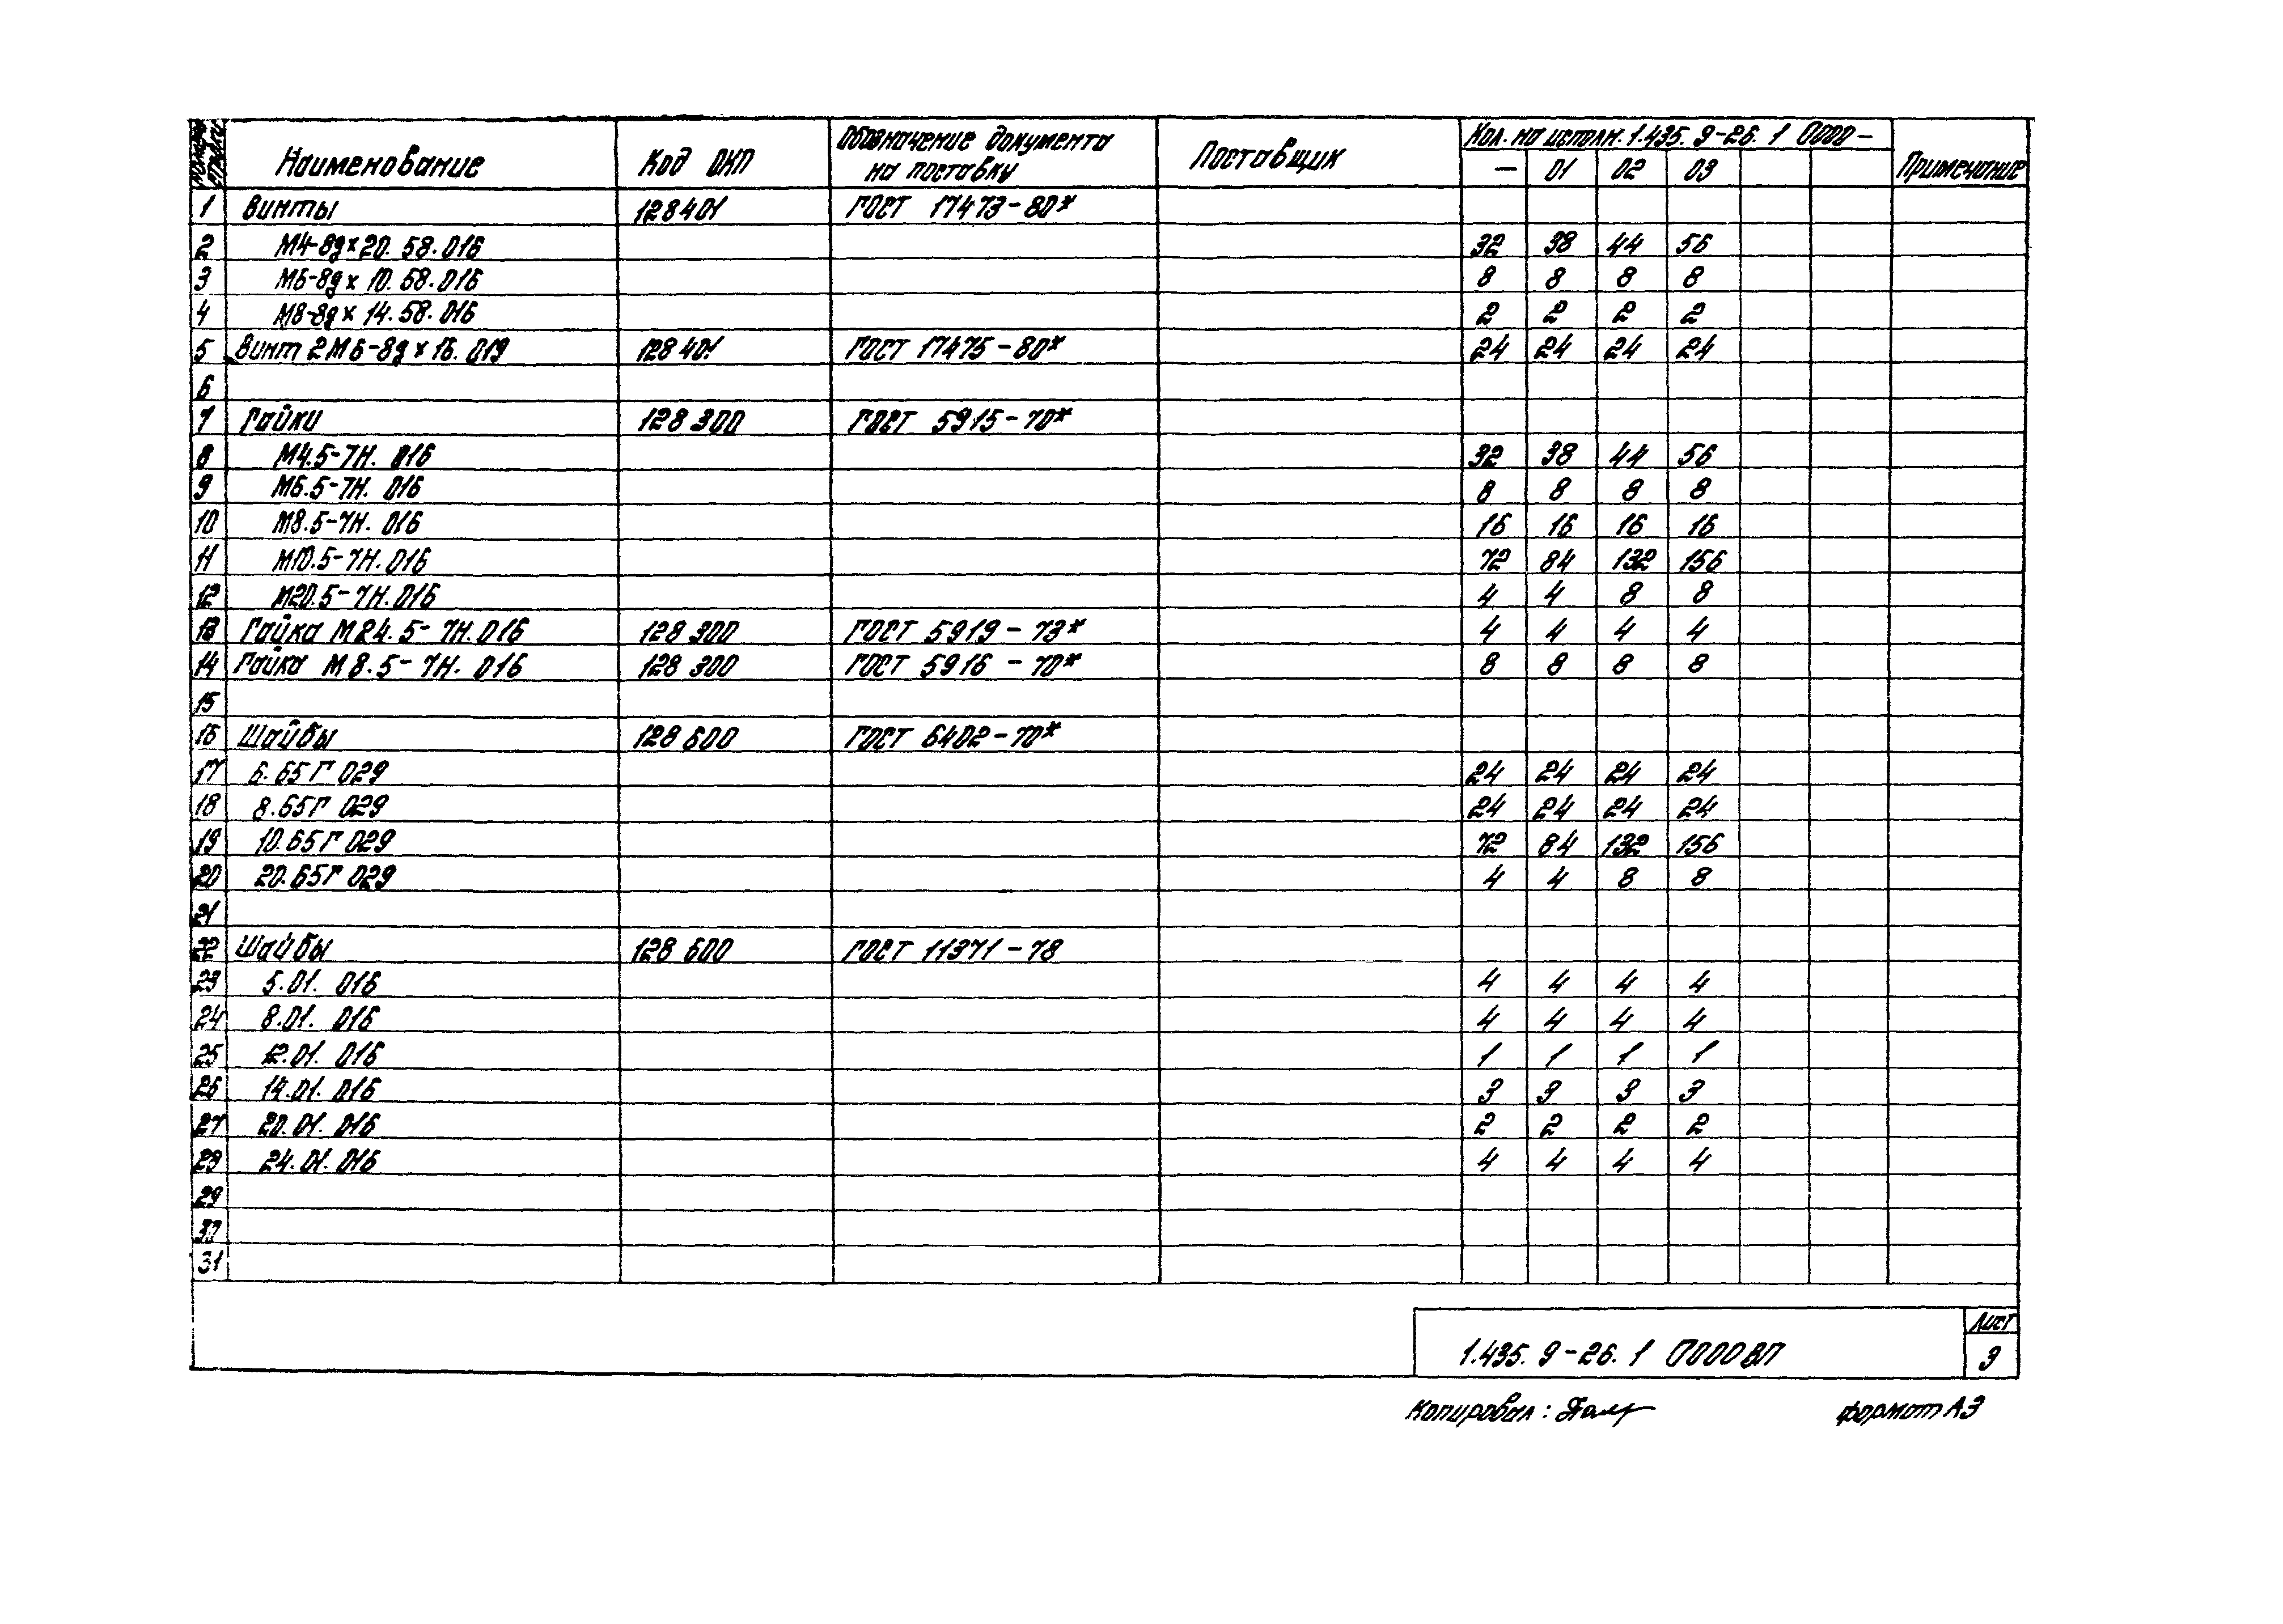 Номер строки Наименование Код ОКП Обозначение документа на поставку Поставщик Кол. на исполн. 1.435.9-26.1 0000- Примечание
— 01 02 03
1 Винты 128401 ГОСТ 17473-80*
2 М4-8gх20.58.016 32 38 44 56
3 М6-8gх10.58.016 8 8 8 8
4 М8-8gх14.58.016 2 2 2 2
5 Винт 2М6-8gх16.019 128401 ГОСТ 17475-80* 24 24 24 24
6
7 Гайки 128300 ГОСТ 5915-70*
8 М4.5-7Н.016 32 38 44 56
9 М6.5-7Н.016 8 8 8 8
10 М8.5-7Н.016 16 16 16 16
11 М10.5-7Н.016 72 84 132 156
12 М20.5-7Н.016 4 4 8 8
13 Гайка М24.5-7Н.016 128300 ГОСТ 5919-73* 4 4 4 4
14 Гайка М8.5-7Н.016 128300 ГОСТ 5916-70* 8 8 8 8
15
16 Шайбы 128600 ГОСТ 6402-70*
17 6.65Г 029 24 24 24 24
18 8.65Г 029 24 24 24 24
19 10.65Г 029 72 84 132 156
20 20.65Г 029 4 4 8 8
21
22 Шайбы 128600 ГОСТ 11371-78
23 5.01.016 4 4 4 4
24 8.01.016 4 4 4 4
25 12.01.016 1 1 1 1
26 14.01.016 3 3 3 3
27 20.01.016 2 2 2 2
28 24.01.016 4 4 4 4
29
30
31
Лист
1.435.9-26.1 0000ВП 3
Копировал: формат А3